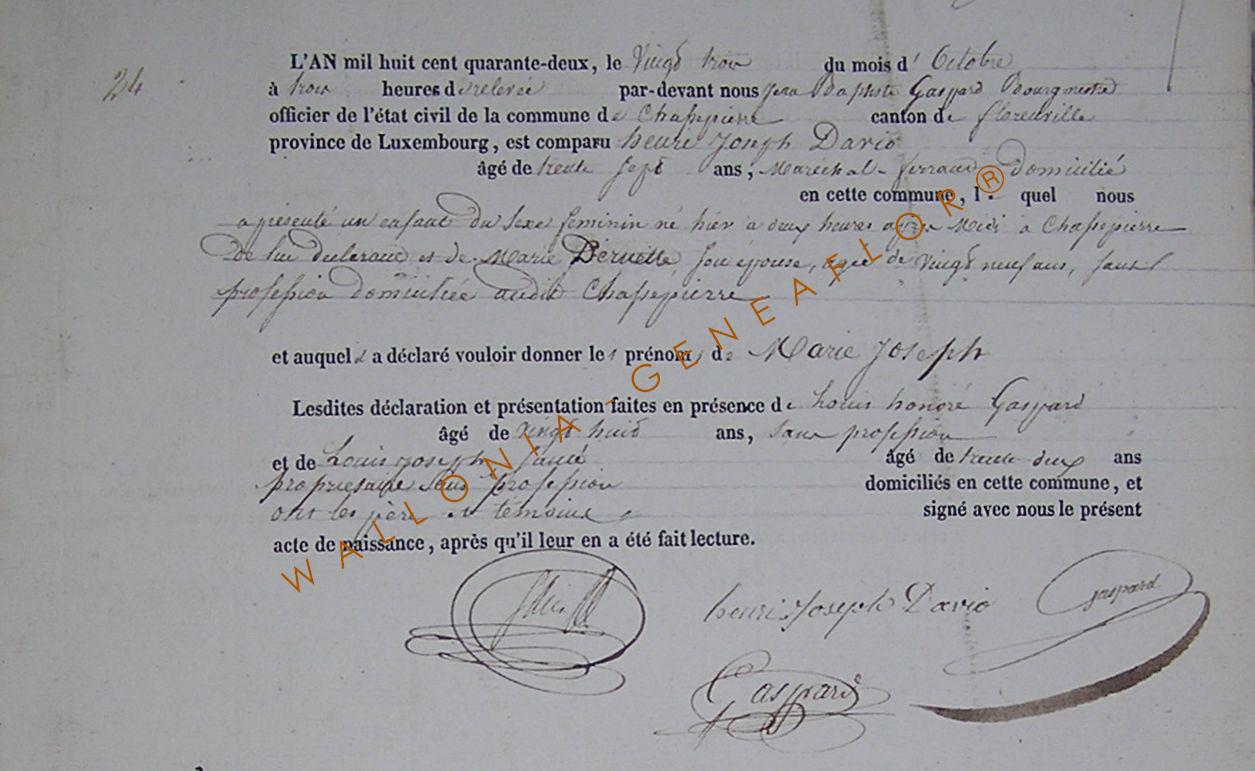 24
L'AN mil huit cent quarante-deux, le vingt trois du mois d'Octobre
à trois heures de relevée par-devant nous Jean Baptiste Gaspard Bourgmestre
officier de l'état civil de la commune de Chassepierre canton de florenville
province de Luxembourg, est comparu henri Joseph Davio
âgé de trente sept ans, Maréchal-ferrand domicilié
en cette commune, l quel nous
a présenté un enfant du sexe feminin né hier à deux heures après Midi à Chassepierre
de lui déclarant et de Marie Pernette, son épouse, agée de vingt neuf ans, sans
profession domiciliée audit Chassepierre
et auquel il a déclaré vouloir donner les prénoms de Marie Joseph
Lesdites déclaration et présentation faites en présence de Louis honoré Gaspard
âgé de vingt huit ans, sans profession
et de Louis Joseph âgé de trente deux ans
propriétaire sans profession domiciliés en cette commune, et
ont les père et témoins signé avec nous le présent
acte de naissance, après qu'il leur en a été fait lecture.
henri Joseph Davio
Gaspard
Gaspard
WALLONIA-GENEAFLOR®